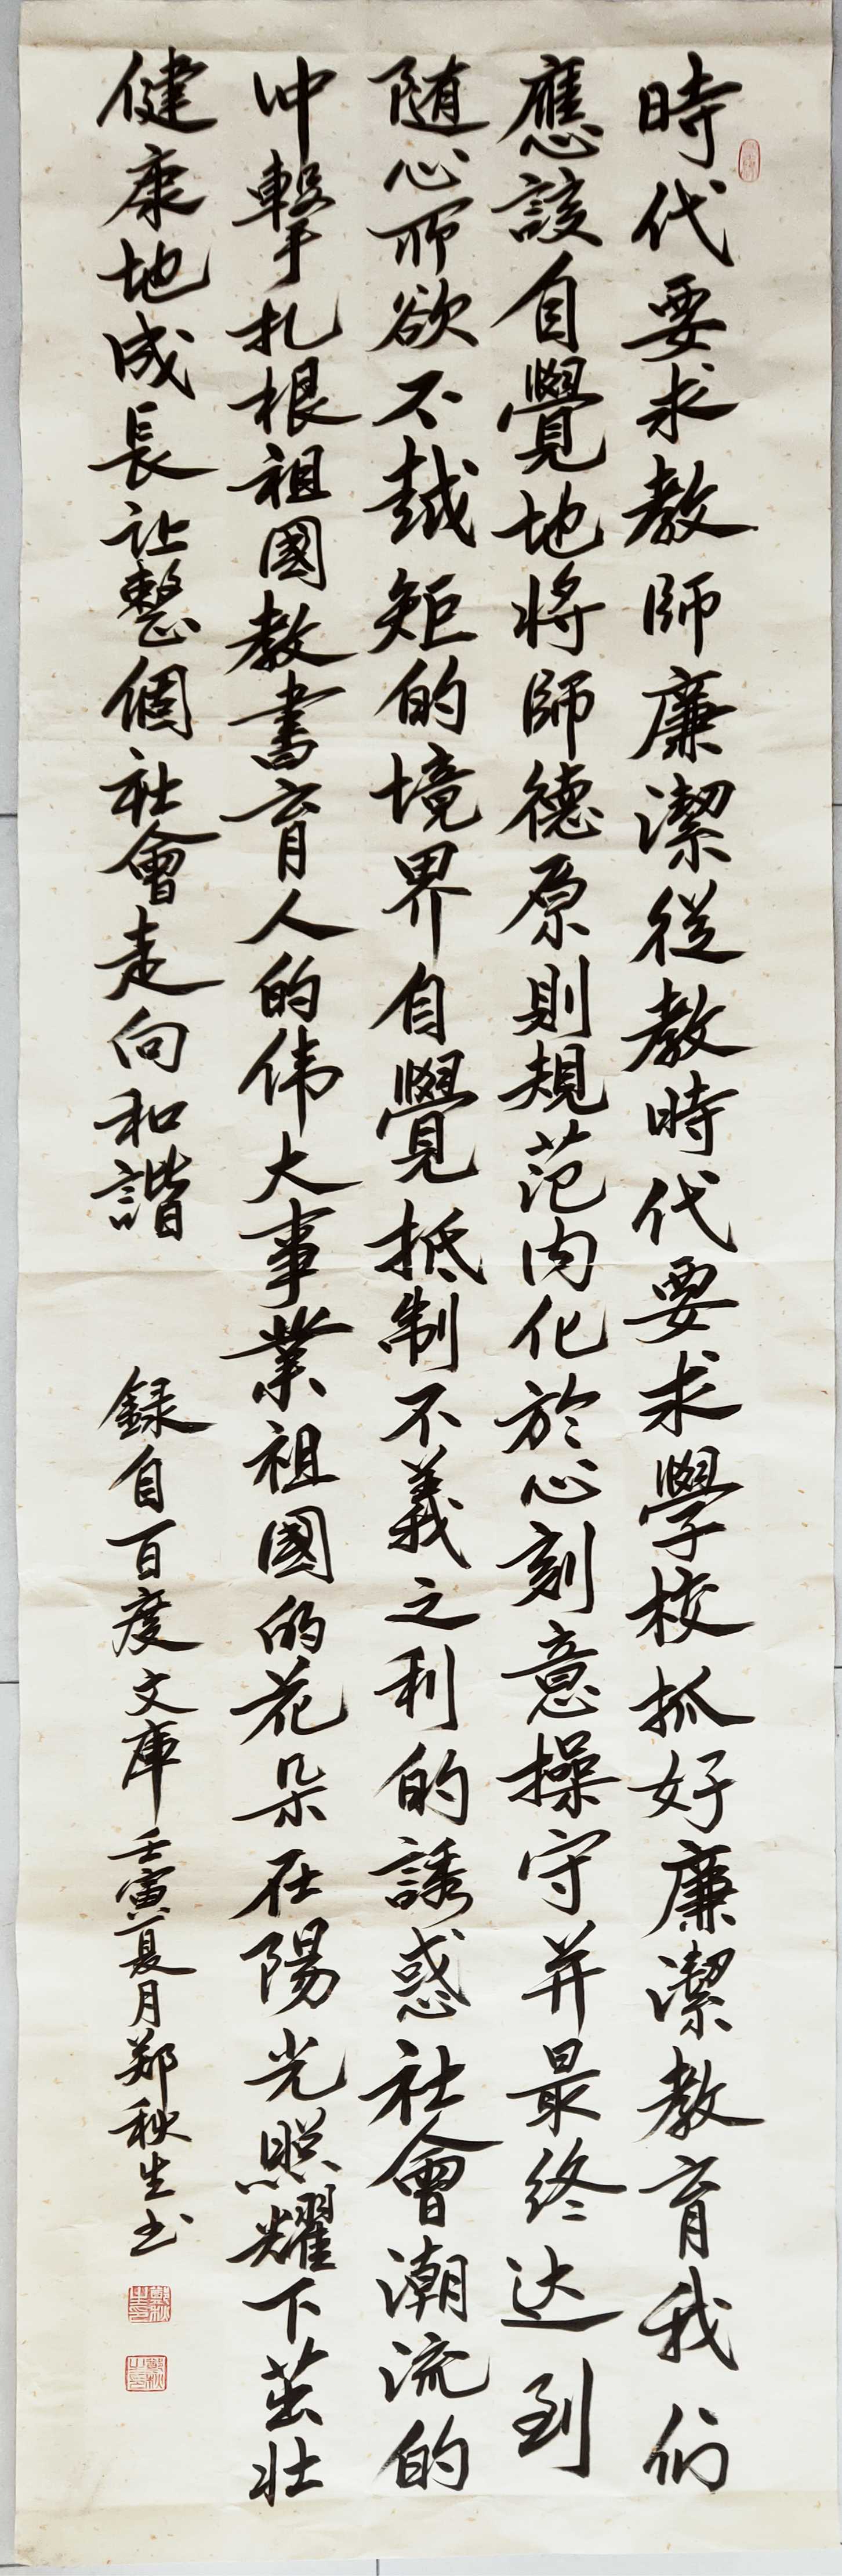 時代要求教師廉潔從教時代要求學校抓好廉潔教育我们
應該自覺地將師德原則規范内化於心刻意操守并最终达到
随心所欲不越矩的境界自覺抵制不義之利的誘惑社會潮流的
冲擊扎根祖國教書育人的伟大事業祖國的花朵在陽光照耀下茁壮
健康地成長让整個社會走向和諧
録自百度文庫壬寅夏月郑秋生书